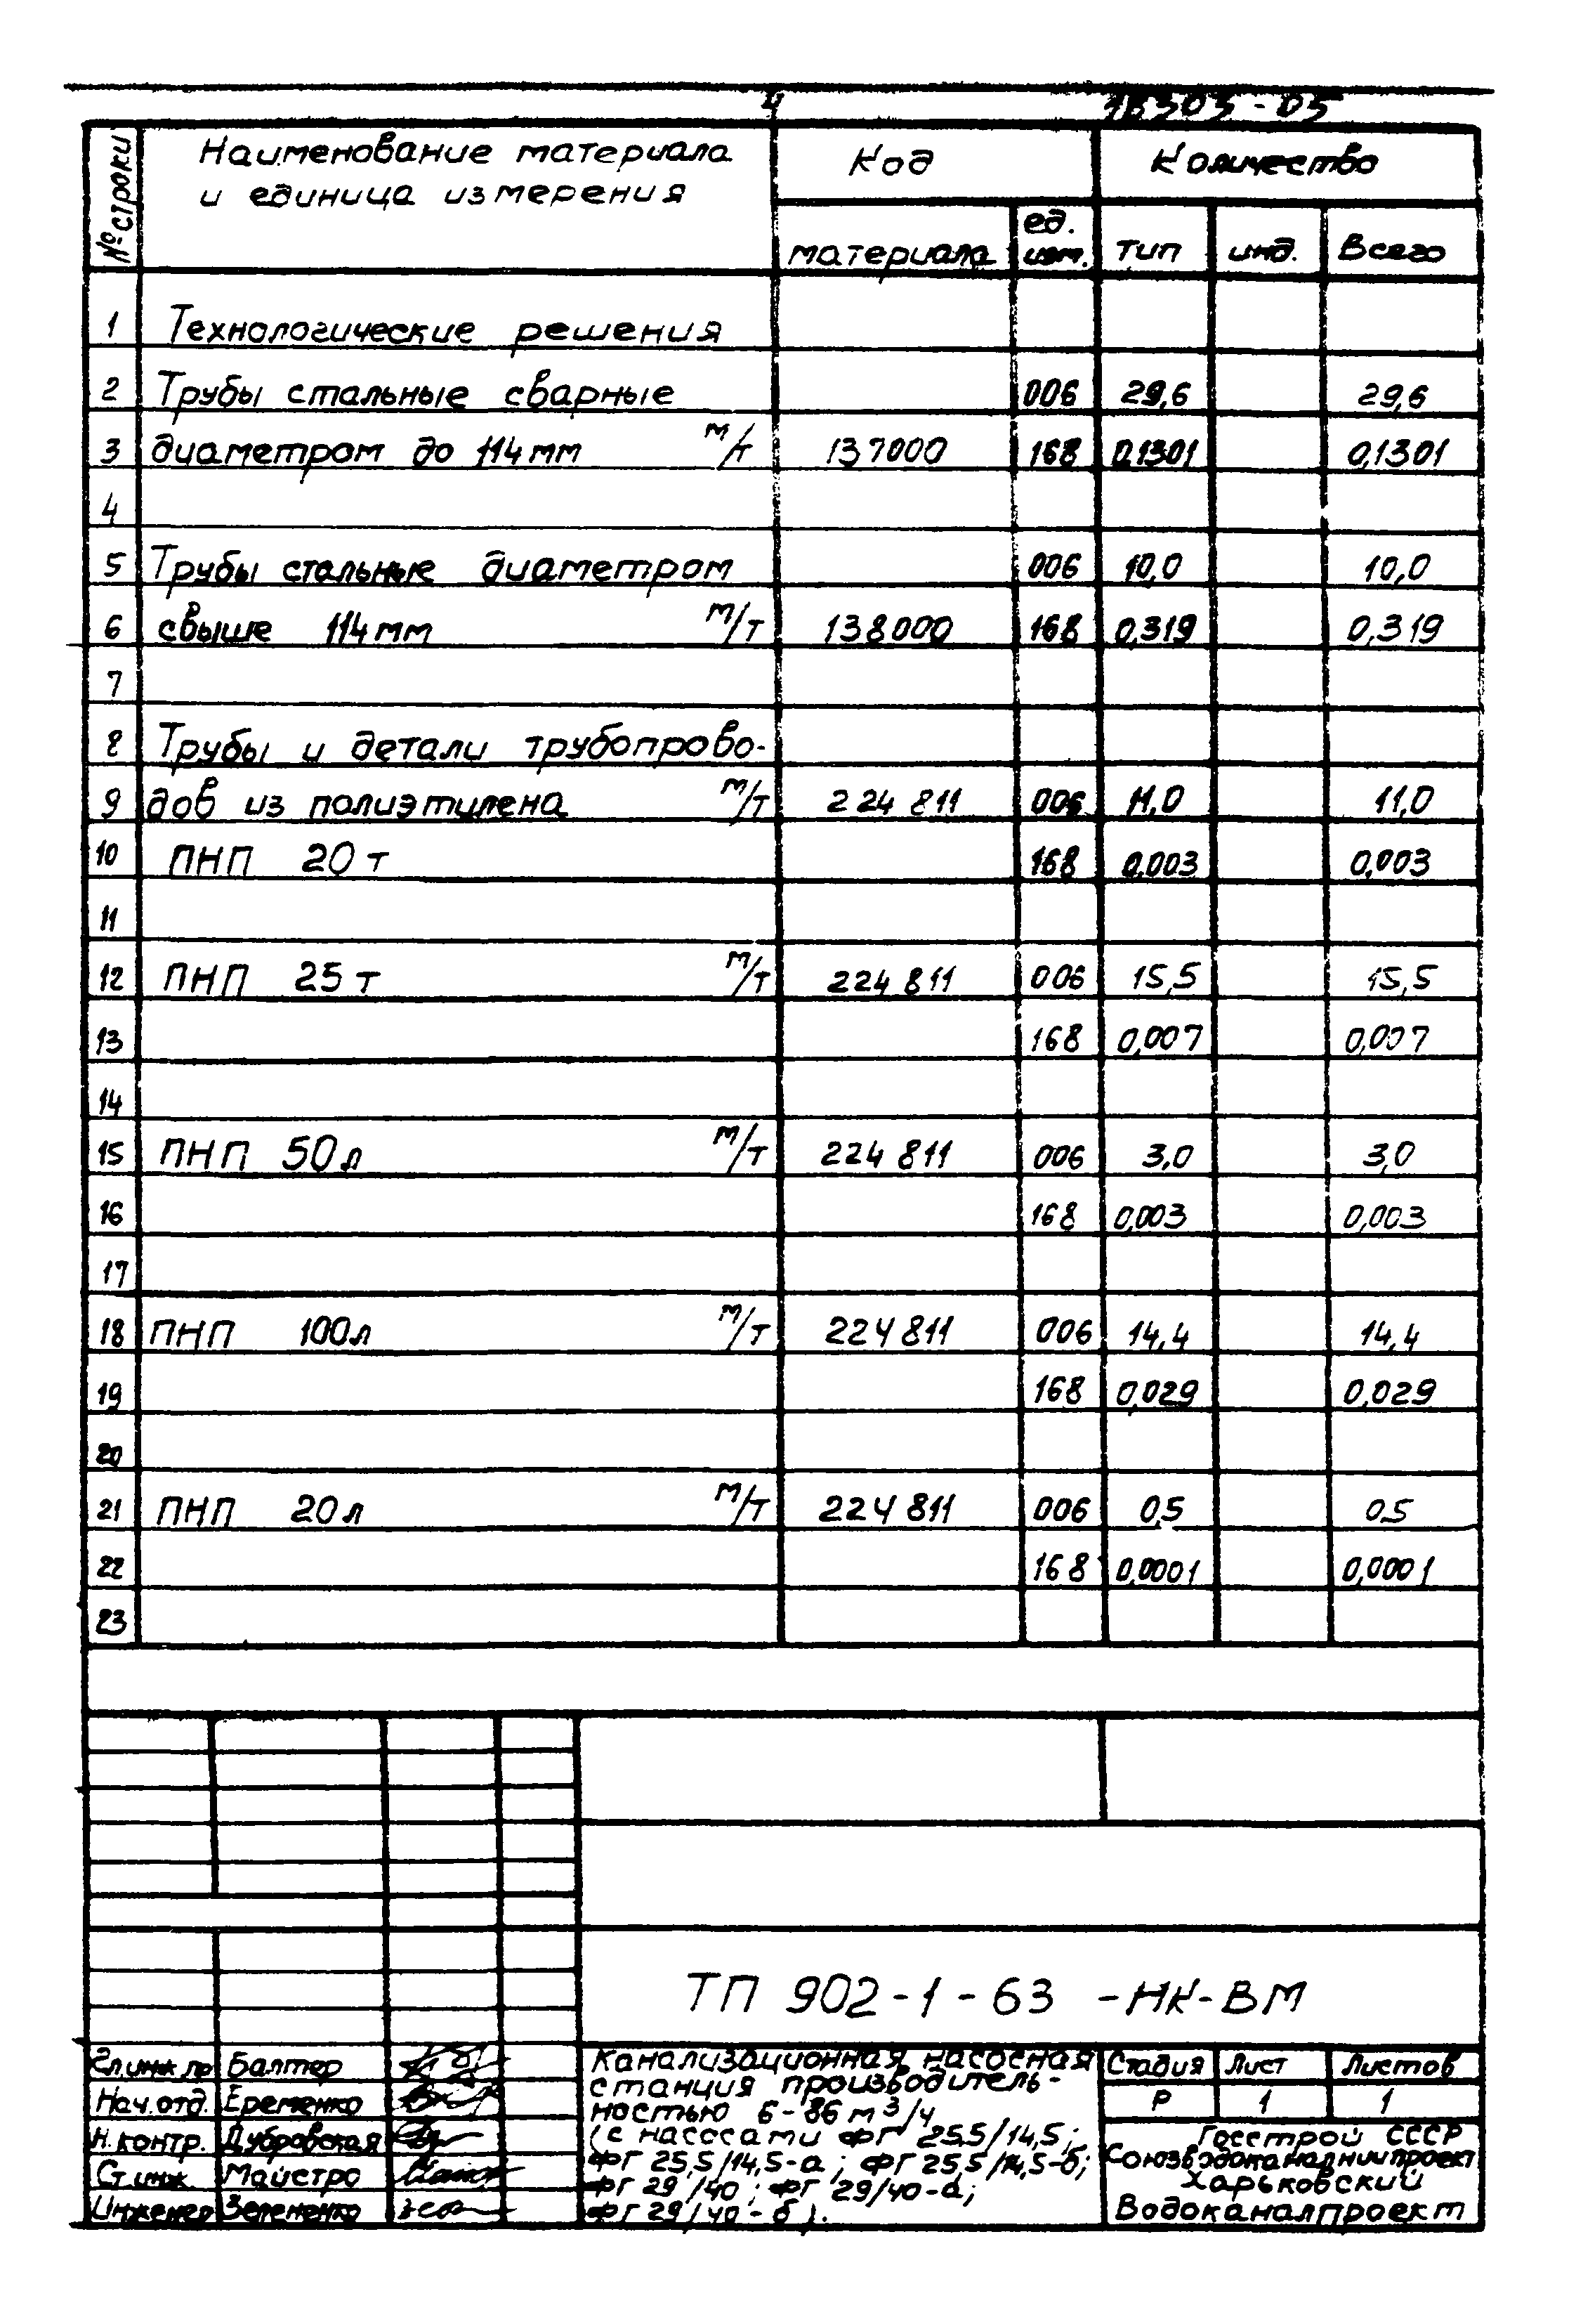 4 18303-05
№ строки Наименование материала и единица измерения Код Количество
материала ед. изм. тип инд. Всего
1 Технологические решения
2 Трубы стальные сварные 006 29,6 29,6
3 диаметром до 114 мм м/т 137000 168 0,1301 0,1301
4
5 Трубы стальные диаметром 006 10,0 10,0
6 свыше 114 мм м/т 138000 168 0,319 0,319
7
8 Трубы и детали трубопрово-
9 дов из полиэтилена м/т 224 811 006 11,0 11,0
10 ПНП 20 т 168 0,003 0,003
11
12 ПНП 25 т м/т 224 811 006 15,5 15,5
13 168 0,007 0,007
14
15 ПНП 50 л м/т 224 811 006 3,0 3,0
16 168 0,003 0,003
17
18 ПНП 100л м/т 224 811 006 14,4 14,4
19 168 0,029 0,029
20
21 ПНП 20 л м/т 224 811 006 0,5 0,5
22 168 0,0001 0,0001
23
ТП 902-1-63 -НК-ВМ
Гл.инж.пр Балтер
Нач.отд. Еременко
Н.контр. Дубровская
Ст.инж. Майстро
Инженер Зелененко
Канализационная насосная
станция производитель-
ностью 6-86 м³/ч
(с насосами ФГ 25,5/14,5;
ФГ 25,5/14,5-а; ФГ 25,5/14,5-б;
ФГ 29/40; ФГ 29/40-а;
ФГ 29/40-б).
Стадия Лист Листов
Р 1 1
Госстрой СССР
Союзводоканалниипроект
Харьковский
Водоканалпроект